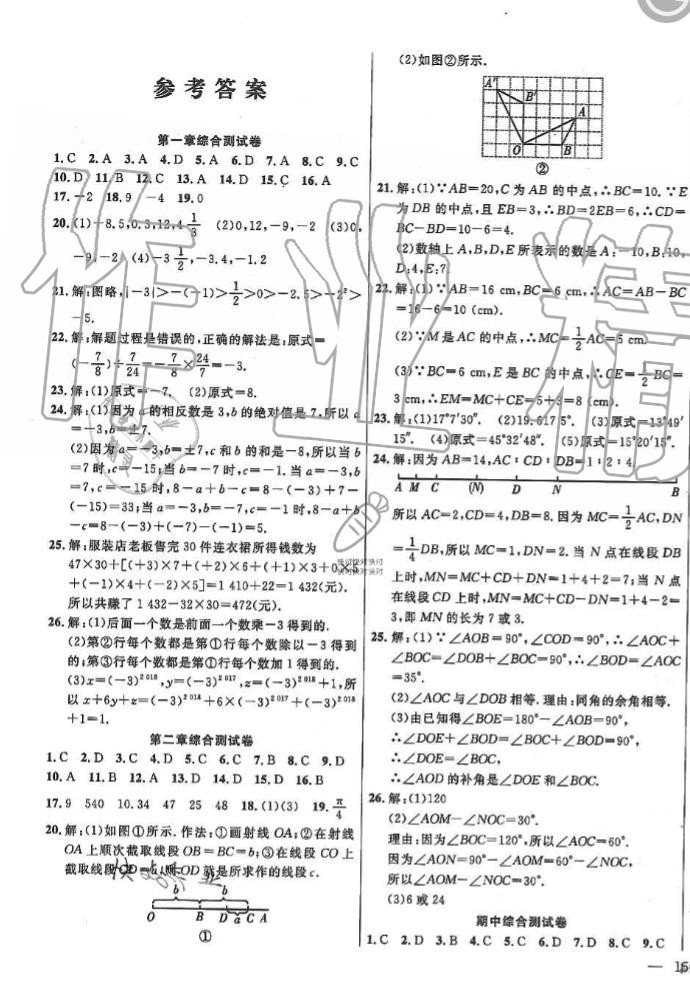 参考答案
第一章综合测试卷
1.C 2.A 3.A 4.D 5.A 6.D 7.A 8.C 9.C
10.D 11.B 12.C 13.A 14.D 15.C 16.A
17.-2 18.9 -4 19.0
20.(1)-8.5,0.3,12,4 1/3 (2)0,12,-9,-2 (3)0,
-9,-2 (4)-3 1/2,-3.4,-1.2
21.解:图略,|-3|>-(-1)>1/2>0>-2.5>-2²>
-5.
22.解:解题过程是错误的,正确的解法是:原式=
(-7/8)÷7/24=-7/8×24/7=-3.
23.解:(1)原式=-7. (2)原式=8.
24.解:(1)因为a的相反数是3,b的绝对值是7,所以a
=-3,b=±7.
(2)因为a=-3,b=±7,c和b的和是-8,所以当b
=7时,c=-15;当b=-7时,c=-1.当a=-3,b
=7,c=-15时,8-a+b-c=8-(-3)+7-
(-15)=33;当a=-3,b=-7,c=-1时,8-a+b
-c=8-(-3)+(-7)-(-1)=5.
25.解:服装店老板售完30件连衣裙所得钱数为
47×30+[(+3)×7+(+2)×6+(+1)×3+0×5
+(-1)×4+(-2)×5]=1 410+22=1 432(元).
所以共赚了1 432-32×30=472(元).
26.解:(1)后面一个数是前面一个数乘-3得到的.
(2)第②行每个数都是第①行每个数除以-3得到
的;第③行每个数都是第①行每个数加1得到的.
(3)x=(-3)²⁰¹⁸,y=(-3)²⁰¹⁷,z=(-3)²⁰¹⁸+1,所
以x+6y+z=(-3)²⁰¹⁸+6×(-3)²⁰¹⁷+(-3)²⁰¹⁸
+1=1.
第二章综合测试卷
1.C 2.D 3.C 4.D 5.C 6.B 7.B 8.C 9.D
10.A 11.B 12.A 13.D 14.D 15.D 16.B
17.9 540 10.34 47 25 48 18.(1)(3) 19.π/4
20.解:(1)如图①所示.作法:①画射线OA;②在射线
OA上顺次截取线段OB=BC=b;③在线段CO上
截取线段CD=a,则OD就是所求作的线段c.
b b
O B D a C A
①
(2)如图②所示.
A' B' A O B
②
21.解:(1)∵AB=20,C为AB的中点,∴BC=10.∵E
为DB的中点,且EB=3,∴BD=2EB=6,∴CD=
BC-BD=10-6=4.
(2)数轴上A,B,D,E所表示的数是A:-10,B:10,
D:4,E:7
22.解:(1)∵AB=16 cm,BC=6 cm,∴AC=AB-BC
=16-6=10(cm).
(2)∵M是AC的中点,∴MC=1/2AC=5 cm.
(3)∵BC=6 cm,E是BC的中点,∴CE=1/2BC=
3 cm,∴EM=MC+CE=5+3=8(cm).
23.解:(1)17°7′30″. (2)19.6175°. (3)原式=13°49′
15″. (4)原式=45°32′48″. (5)原式=15°20′15″.
24.解:因为AB=14,AC∶CD∶DB=1∶2∶4,
A M C (N) D N B
所以AC=2,CD=4,DB=8.因为MC=1/2AC,DN
=1/4DB,所以MC=1,DN=2.当N点在线段DB
上时,MN=MC+CD+DN=1+4+2=7;当N点
在线段CD上时,MN=MC+CD-DN=1+4-2=
3,即MN的长为7或3.
25.解:(1)∵∠AOB=90°,∠COD=90°,∴∠AOC+
∠BOC=∠DOB+∠BOC=90°,∴∠BOD=∠AOC
=35°.
(2)∠AOC与∠DOB相等.理由:同角的余角相等.
(3)由已知得∠BOE=180°-∠AOB=90°,
∴∠DOE+∠BOD=∠BOC+∠BOD=90°,
∴∠DOE=∠BOC,
∴∠AOD的补角是∠DOE和∠BOC.
26.解:(1)120
(2)∠AOM-∠NOC=30°.
理由:因为∠BOC=120°,所以∠AOC=60°.
因为∠AON=90°-∠AOM=60°-∠NOC,
所以∠AOM-∠NOC=30°.
(3)6或24
期中综合测试卷
1.C 2.D 3.B 4.C 5.D 6.C 7.B 8.C 9.C
作业精